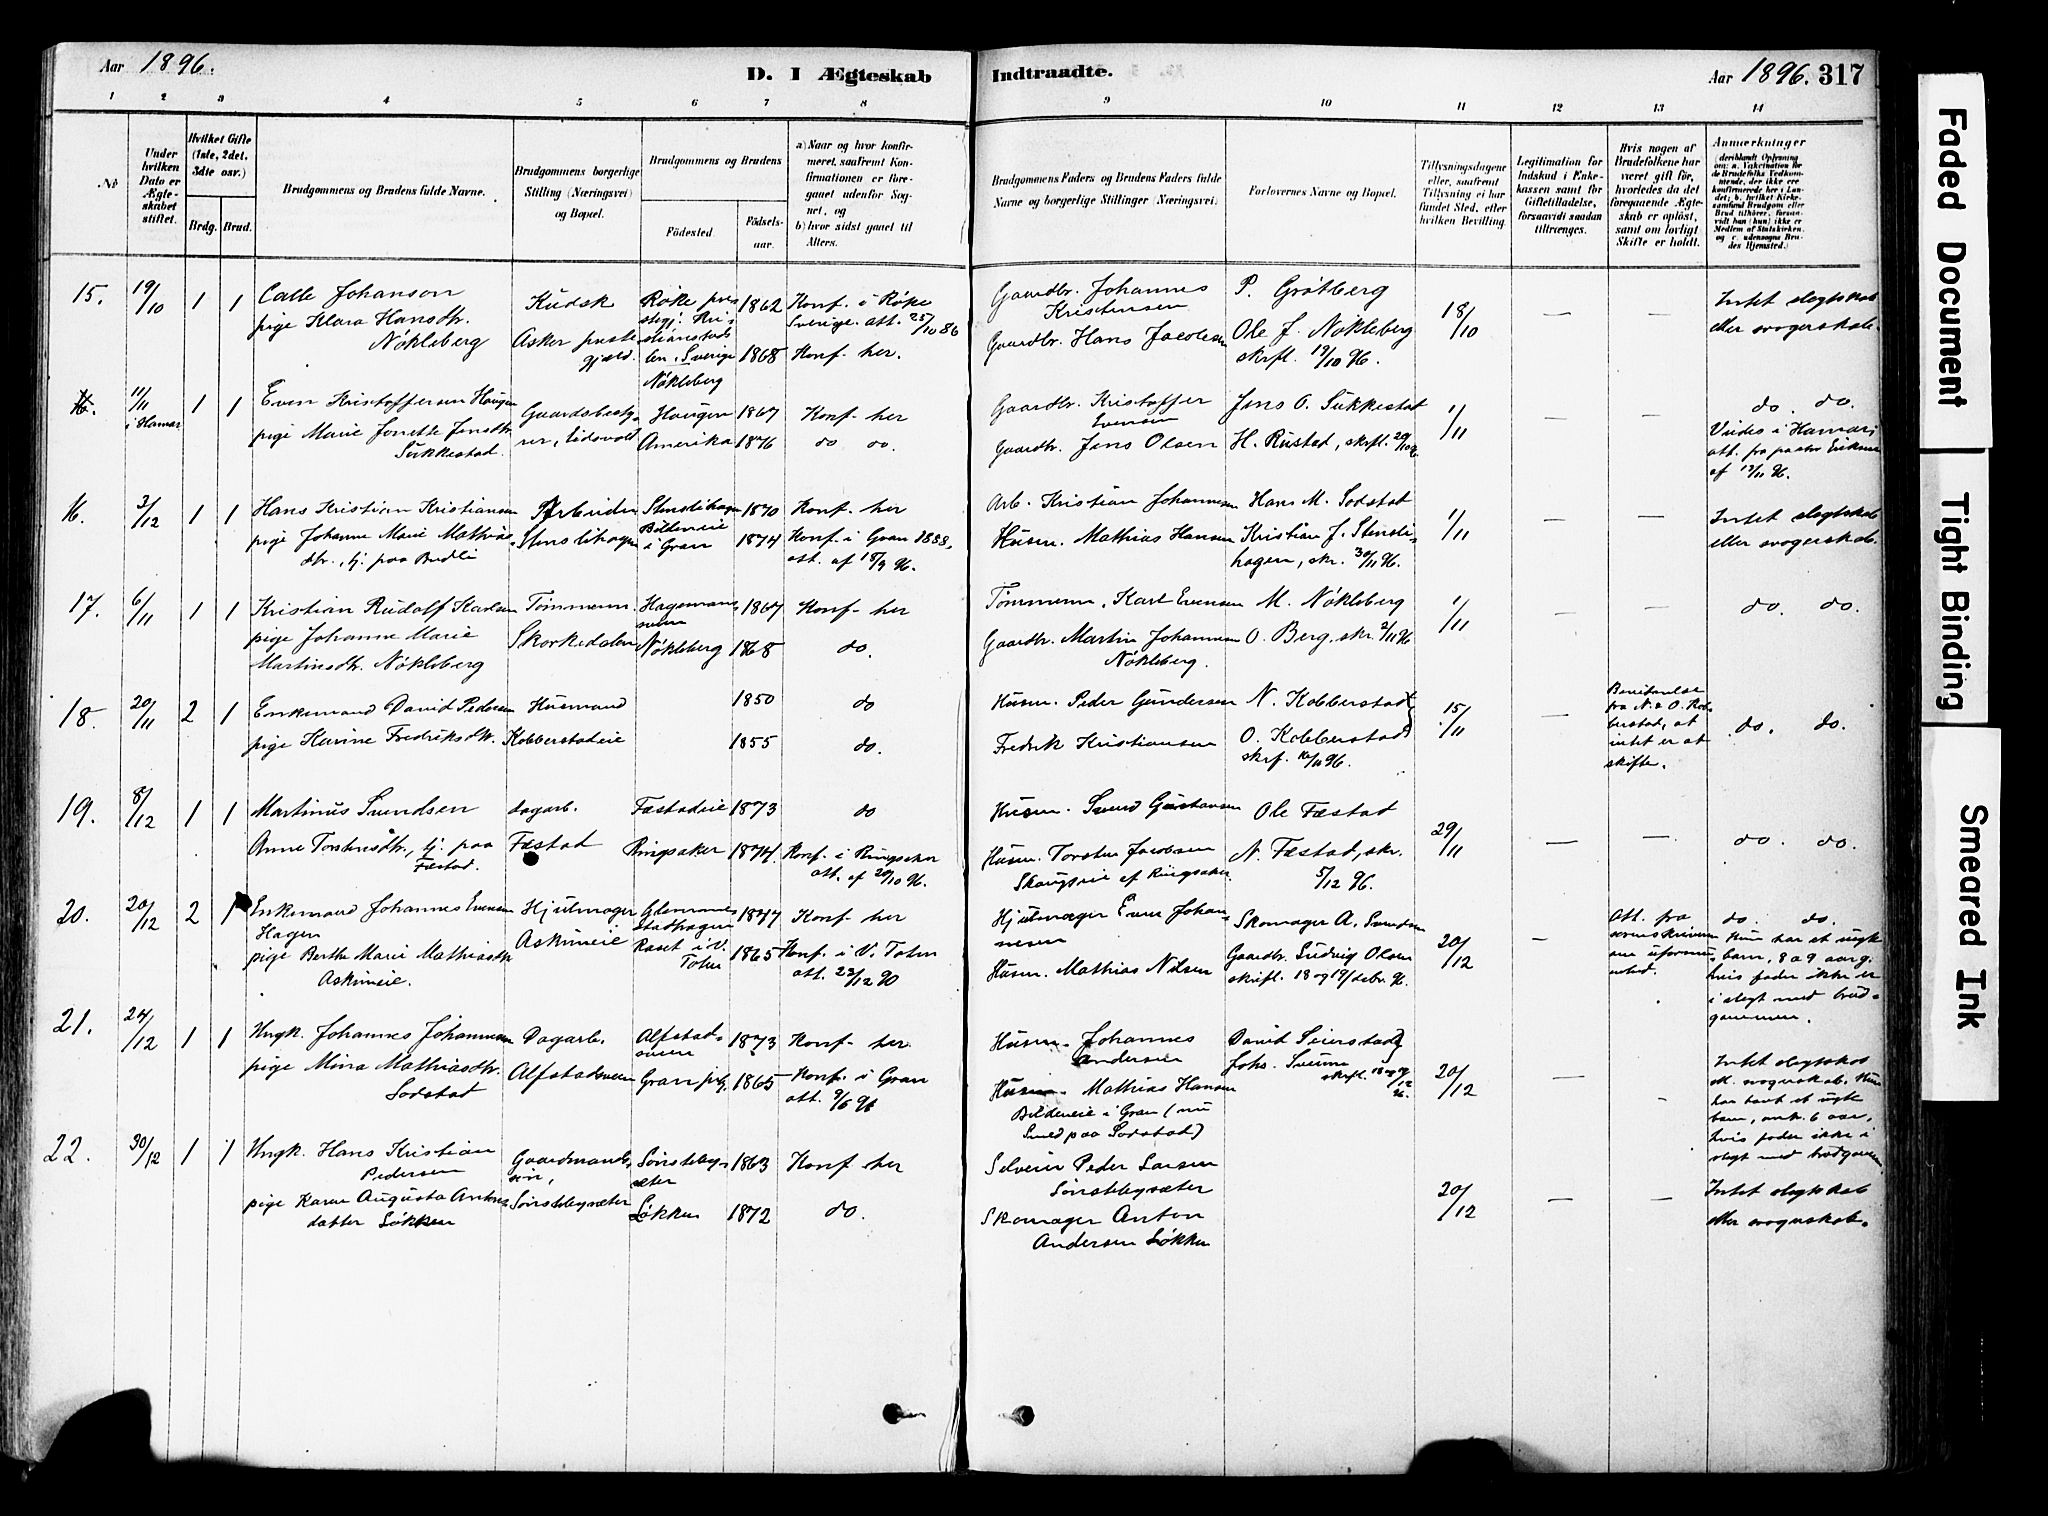 Aar 1896.
D. I Ægteskab
Indtraadte.
Aar 1896. 317
1 2 3 4 5 6 7 8 9 10 11 12 13 14
No
Under hvilken Dato er Ægteskabet stiftet.
Hvilket Gifte (1ste, 2det, 3die osv.)
Brdg. Brud.
Brudgommens og Brudens fulde Navne.
Brudgommens borgerlige Stilling (Næringsvei) og Bopæl.
Brudgommens og Brudens
Födested.
Födselsaar.
a) Naar og hvor konfirmeret, saafremt Konfirmationen er foregaaet udenfor Sognet, og
b) hvor sidst gaaet til Alters.
Brudgommens Faders og Brudens Faders fulde Navne og borgerlige Stillinger (Næringsvei).
Forlovernes Navne og Bopæl.
Tillysningsdagene eller, saafremt Tillysning ei har fundet Sted, efter hvilken Bevilling.
Legitimation for Indskud i Enkekassen samt for Giftetilladelse, forsaavidt saadan tiltrænges.
Hvis nogen af Brudefolkene har været gift før, hvorledes da det foregaaende Ægteskab er opløst, samt om lovligt Skifte er holdt.
Anmærkninger
15. 19/10 1 1
Calle Johanson
pige Klara Hansdtr.
Nökleberg
Kudsk
Asker prestegjæld.
1862
1868
Konf. i Röke
Sverige. att. 25/10 86
Konf. her.
Nökleberg
Gaardbr. Johannes
Kristensen
Gaardbr. Hans Jacobsen
P. Grötberg
Ole J. Nökleberg
skrftl. 19/10 96.
18/10 — —
Intet slegtskab
eller svogerskab.
16. 11/11
i Hamar
1 1
Even Kristoffersen Haugen
pige Marie Jonette Jensdtr.
Sukkestad.
Gaardsbesty-
rer, Eidsvold
Haugen 1867
Amerika 1876
Konf. her
do do.
Gaardbr. Kristoffer
Evensen
Gaardbr. Jens Olsen
Jens O. Sukkestad
H. Rustad, skrftl.
1/11 — —
do. do.
Viedes i Hamar,
att. fra pastor
af 13/11 96.
16. 3/12 1 1
Hans Kristian Kristiansen
pige Johanne Marie Mathias-
dtr., tj. paa Budli
Arbeider
Stenslihagen
Stenslihagen 1870
Bildeneie
i Gran 1874
Konf. her
Konf. i Gran 1888,
att. af 18/9 96.
Arb. Kristian Johannesen
Husm. Mathias Hansen
Hans M. Sodstad
Kristian J. Stensli-
hagen, skr. 30/11 96.
1/11 — —
Intet slegtskab
eller svogerskab.
17. 6/11 1 1
Kristian Rudolf Karlsen
pige Johanne Marie
Martinsdtr. Nökleberg
Tömmerm.
Skorkedalen
1867
Nökleberg 1868
Konf. her
do.
Tömmerm. Karl Evensen
Gaardbr. Martin Johannesen
Nökleberg.
M. Nökleberg
O. Berg, skr. 2/11 96
1/11 — —
do. do.
18. 20/11 2 1
Enkemand David Pedersen
pige Karine Fredriksdtr.
Husmand
Kobberstadeie
1850
1855
do
do.
Husm. Peder Gundersen
Fredrik Kristiansen
N. Kobberstad
O. Kobberstad
skrf. 16/11 96.
15/11 —
fra N. & O. Kob-
berstad, at
intet er at
skifte.
do. do.
19. 8/12 1 1
Martinus Svendsen
Anne Torstensdtr., tj. paa
Fæstad.
dagarb.
Fæstad
Fæstadeie 1873
Ringsaker 1874.
do
Konf. i Ringsaker
att. af 20/10 96.
Husm. Svend Gustavsen
Husm. Torsten Jacobsen
Skaugseie af Ringsaker.
Ole Fæstad
N. Fæstad, skr.
5/12 96.
29/11 — —
do. do.
20. 20/12 2 1
Enkemand Johannes Evensen
Hagen
pige Berthe Marie Mathiasdtr
Askimeie.
Hjulmager
Askimeie
Stadhagen 1847
Raset i V.
Toten 1865
Konf. her
Konf. i V. Toten
att. 23/12 90
Hjulmager Even Johan-
nesen
Husm. Mathias Nilsen
Skomager A. Svendsen
Gaardbr. Ludvig Olsen
skriftl. 18 og 19/ debr. 96.
20/12 —
Att. fra
do. do.
Hun har et uegte
barn, 8 a 9 aar g.
hvis fader ikke er
i slegt med brud-
gommen.
21. 24/12 1 1
Ungk. Johannes Johannesen
pige Mina Mathiasdtr.
Sodstad
Dagarb.
Alfstadsveen
Alfstad-
sveen 1873
Gran prg. 1865
Konf. her
Konf. i Gran
att. 9/6 96
Husm. Johannes
Andersen
Husm. Mathias Hansen
Bildeneie i Gran (nu
Smed paa Sodstad)
David Seierstad
Johs. Sveum
20/12 —
Intet slegtskab
el. svogerskab. Hun
har havt et uegte
barn, omkr. 6 aar,
hvis fader ikke i
slegt med brudgommen
22. 30/12 1 1
Ungk. Hans Kristian
Pedersen
pige Karen Augusta Antons-
datter Lökken
Gaardmands-
sön,
Sönstebysæter
Sönsteby-
sæter 1863
Lökken 1872
Konf her
do.
Selveier Peder Larsen
Sönstebysæter
Skomager Anton
Andersen Lökken
20/12 — —
Intet slegtskab
eller svogerskab.
Faded Document
Tight Binding
Smeared Ink